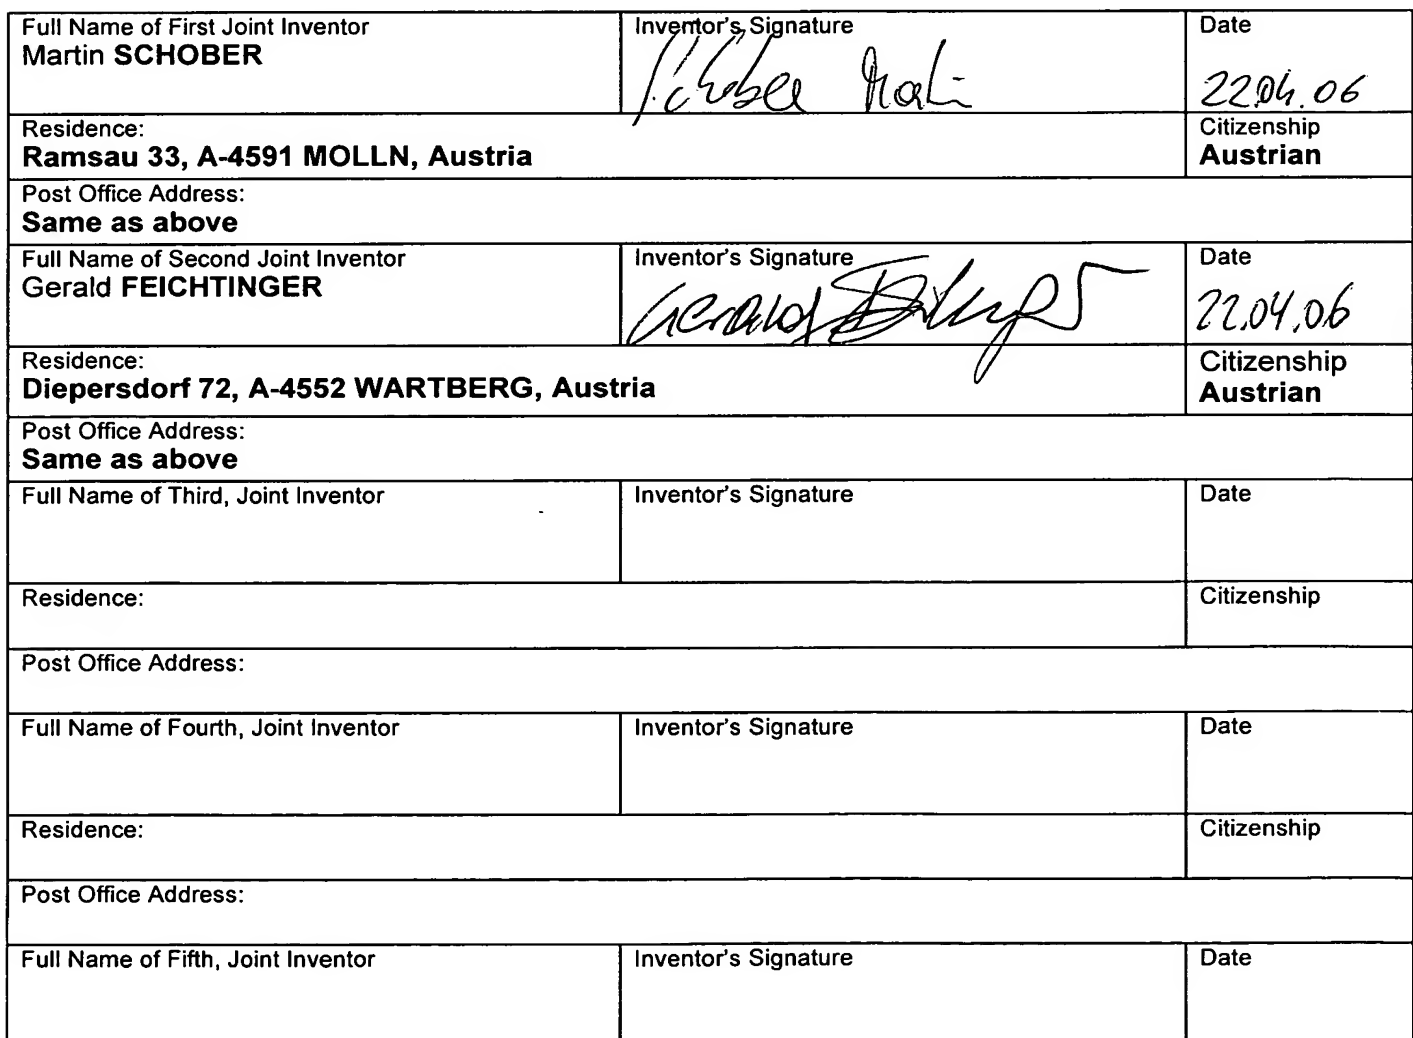 Full Name of First Joint Inventor
Martin SCHOBER
Inventor's Signature
Schober Martin
Date
22.04.06
Residence:
Ramsau 33, A-4591 MOLLN, Austria
Citizenship
Austrian
Post Office Address:
Same as above
Full Name of Second Joint Inventor
Gerald FEICHTINGER
Inventor's Signature
Gerald
Date
22.04.06
Residence:
Diepersdorf 72, A-4552 WARTBERG, Austria
Citizenship
Austrian
Post Office Address:
Same as above
Full Name of Third, Joint Inventor
Inventor's Signature
Date
Residence:
Citizenship
Post Office Address:
Full Name of Fourth, Joint Inventor
Inventor's Signature
Date
Residence:
Citizenship
Post Office Address:
Full Name of Fifth, Joint Inventor
Inventor's Signature
Date